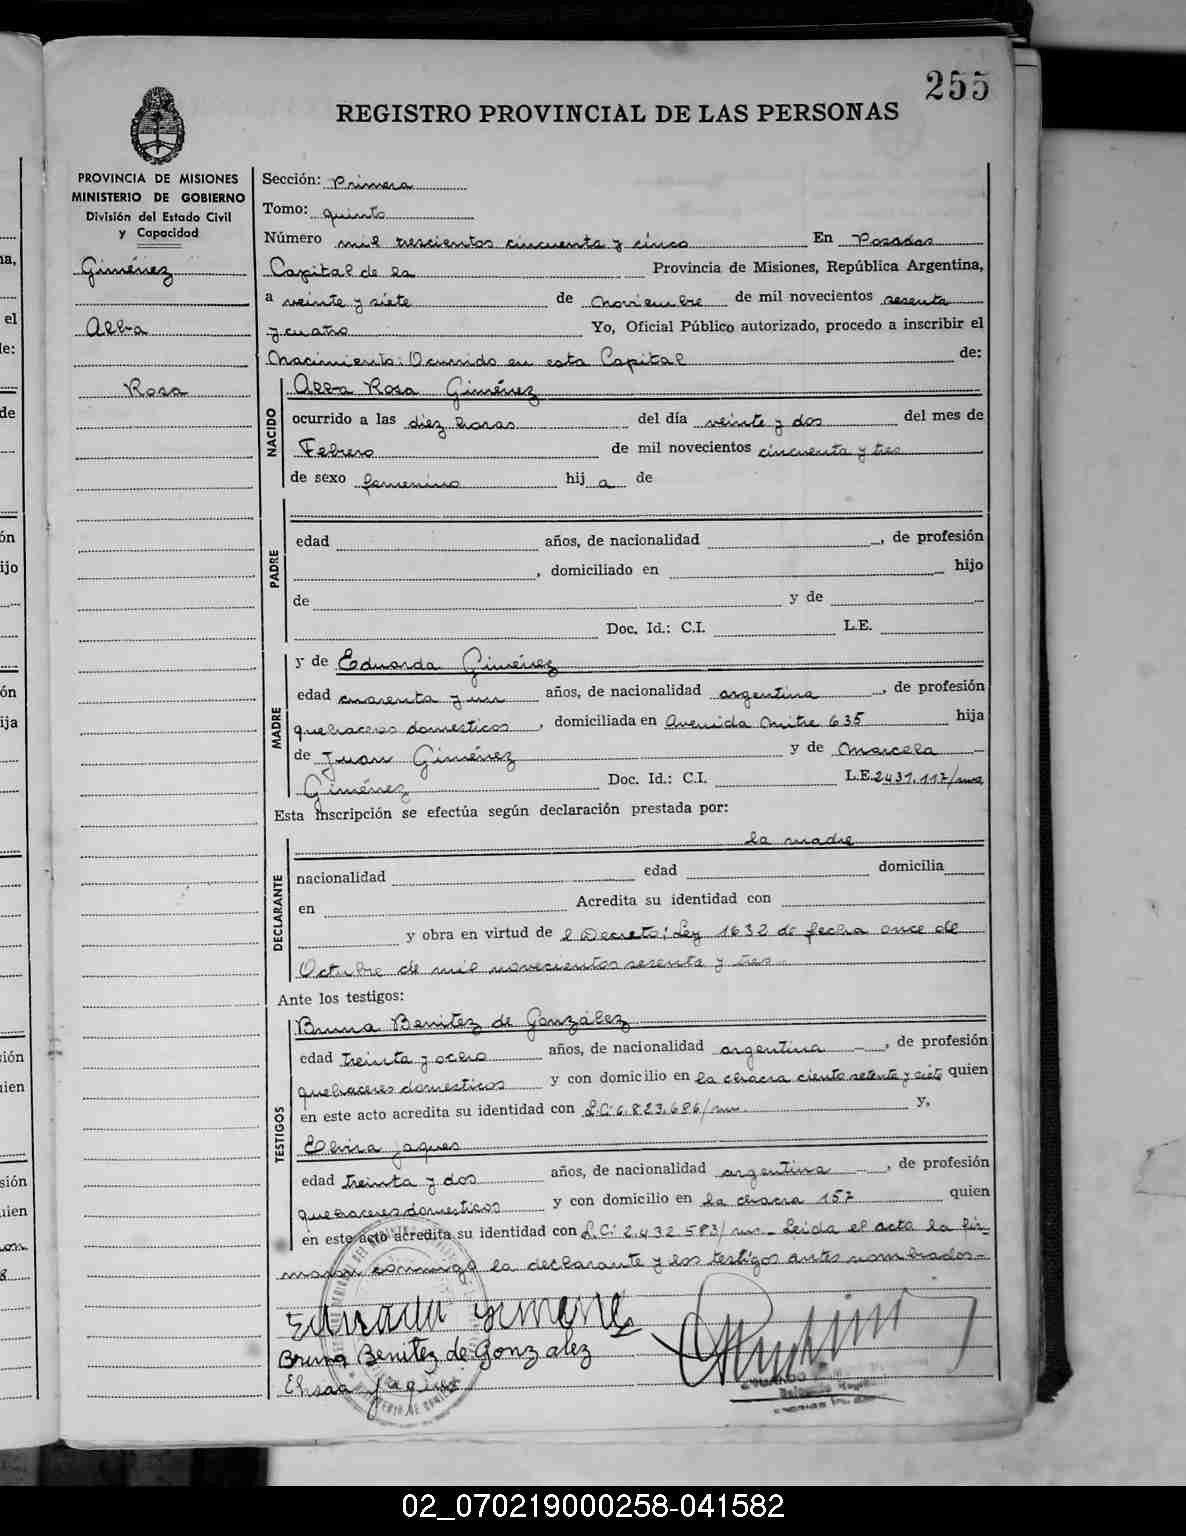 255
REGISTRO PROVINCIAL DE LAS PERSONAS
PROVINCIA DE MISIONES
MINISTERIO DE GOBIERNO
División del Estado Civil
y Capacidad
Giménez
Alba
Rosa
Sección: Primera
Tomo: quinto
Número mil trescientos cincuenta y cinco En Posadas
Capital de la Provincia de Misiones, República Argentina,
a veinte y siete de Noviembre de mil novecientos sesenta
y cuatro Yo, Oficial Público autorizado, procedo a inscribir el
Nacimiento: Ocurrido en esta Capital de:
NACIDO
Alba Rosa Giménez
ocurrido a las diez horas del día veinte y dos del mes de
Febrero de mil novecientos cincuenta y tres
de sexo femenino hij a de
PADRE
edad años, de nacionalidad , de profesión
, domiciliado en hijo
de y de
Doc. Id.: C.I. L.E.
MADRE
y de Eduarda Giménez
edad cuarenta y un años, de nacionalidad argentina , de profesión
quehaceres domesticos , domiciliada en Avenida Mitre 635 hija
de Juan Giménez y de Marcela
Giménez Doc. Id.: C.I. L.E. 2431.117/
Esta inscripción se efectúa según declaración prestada por:
DECLARANTE
la madre
nacionalidad edad domicilia
en Acredita su identidad con
y obra en virtud de l Decreto: Ley 1632 de fecha once de
Octubre de mil novecientos sesenta y tres -
Ante los testigos:
TESTIGOS
Bruna Benitez de González
edad treinta y ocho años, de nacionalidad argentina , de profesión
quehaceres domesticos y con domicilio en la chacra ciento setenta y siete quien
en este acto acredita su identidad con L.C: 6.823.686/ y,
Elvira Jaques
edad treinta y dos años, de nacionalidad argentina , de profesión
quehaceres domesticos y con domicilio en la chacra 157 quien
en este acto acredita su identidad con L.C: 2.432 583/ Leida el acta la fir-
man conmigo la declarante y los testigos antes nombrados -
Eduarda Gimenez
Bruna Benitez de Gonzalez
02_070219000258-041582